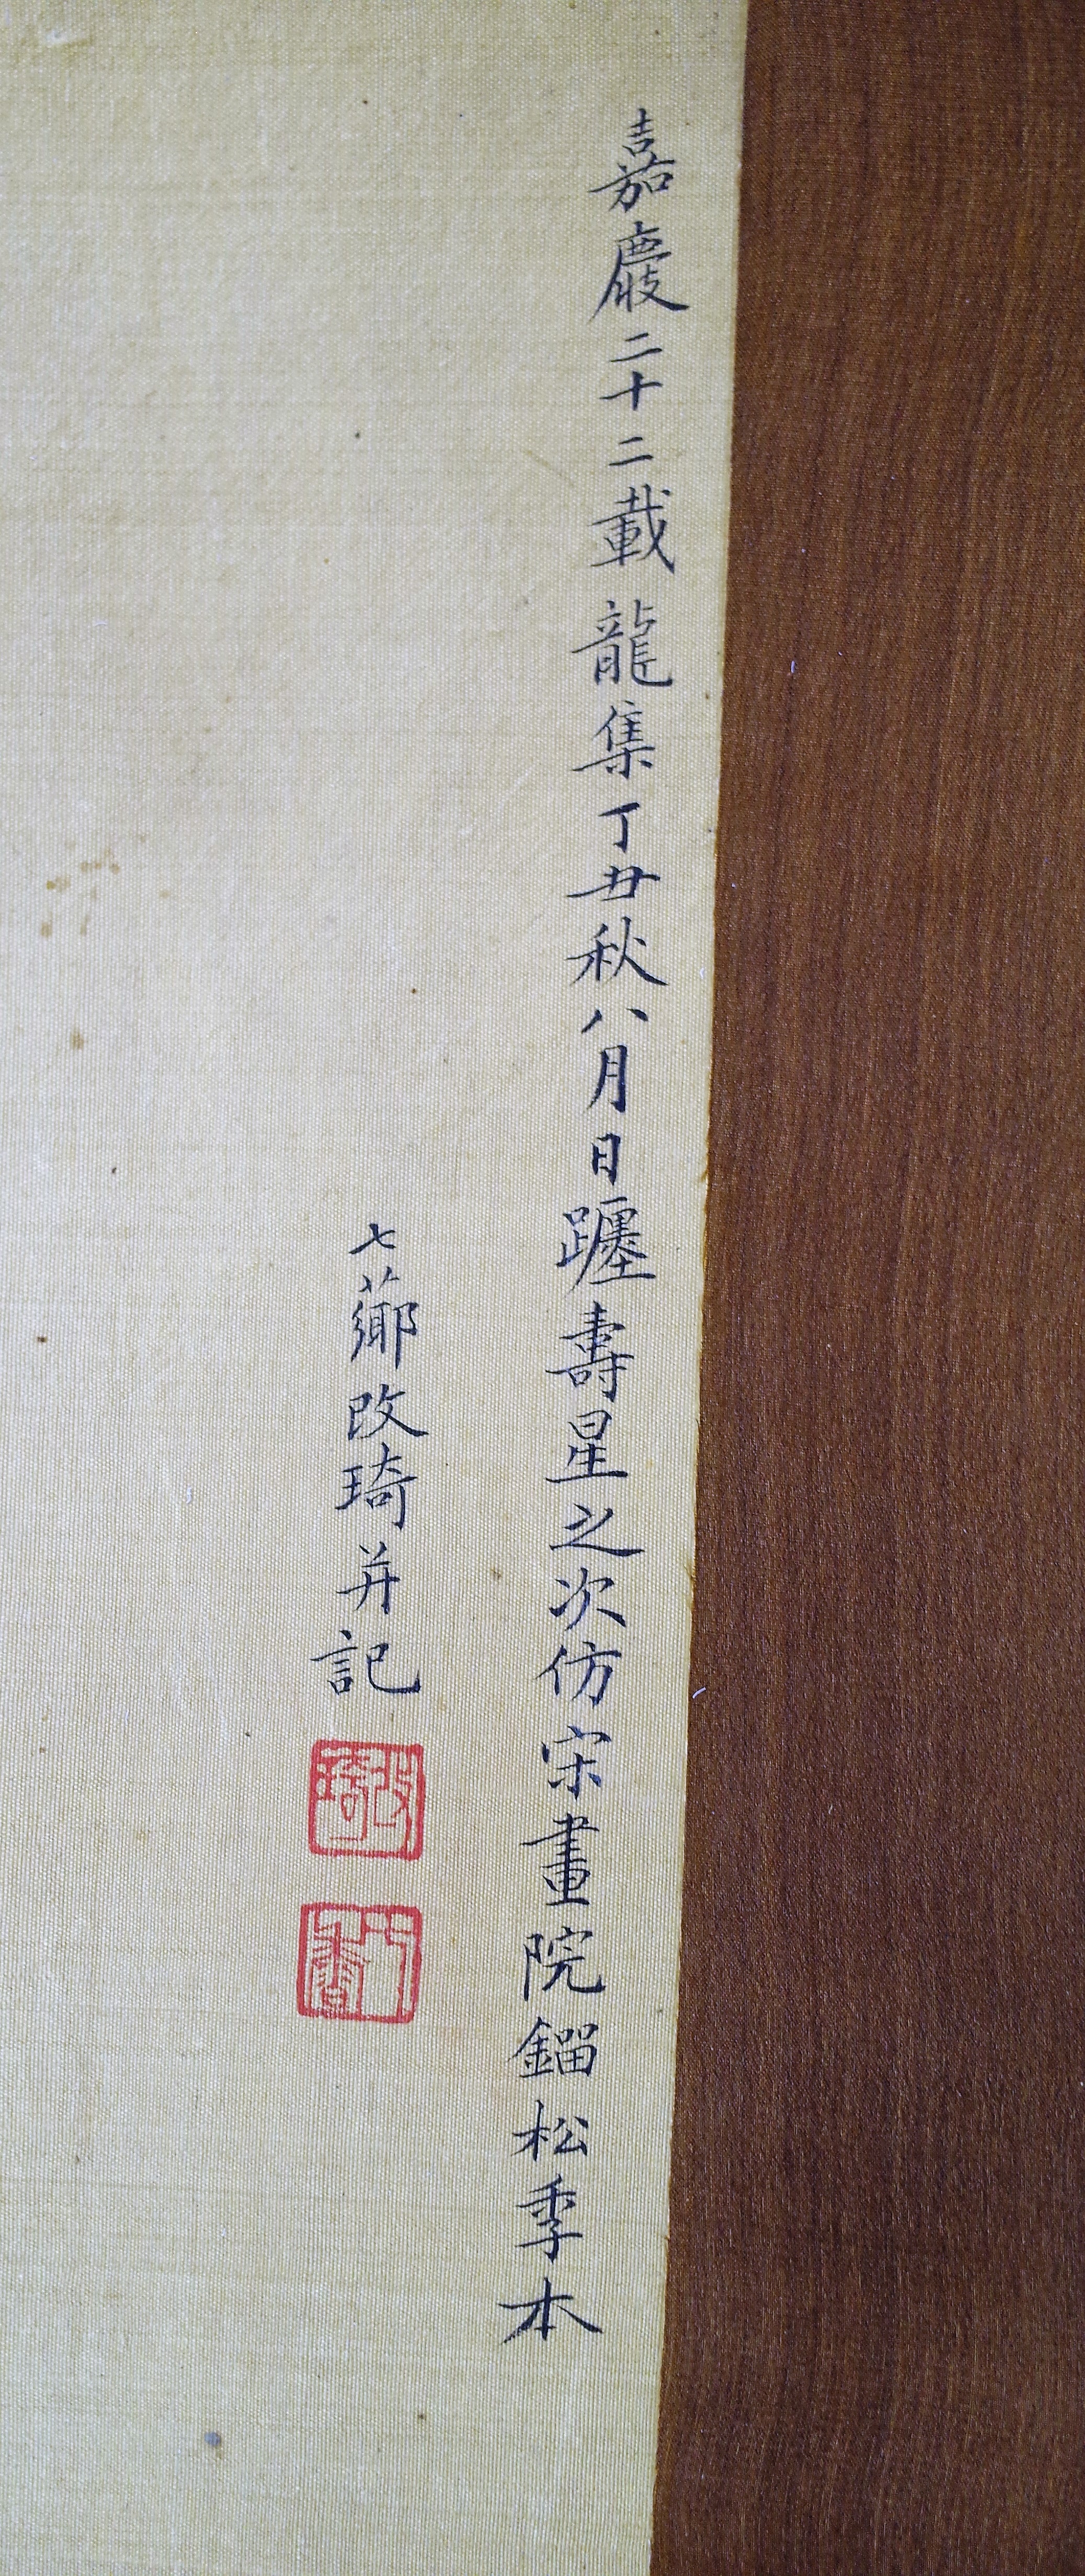 嘉慶二十二載龍集丁丑秋八月日躔壽星之次仿宋畫院鎦松季本
七薌改琦并記
改琦
七香